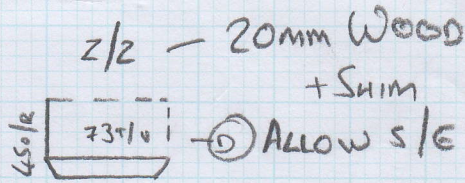 2/2 — 20mm WOOD
+ SHIM
450/R
73T/U
D ALLOW S/E